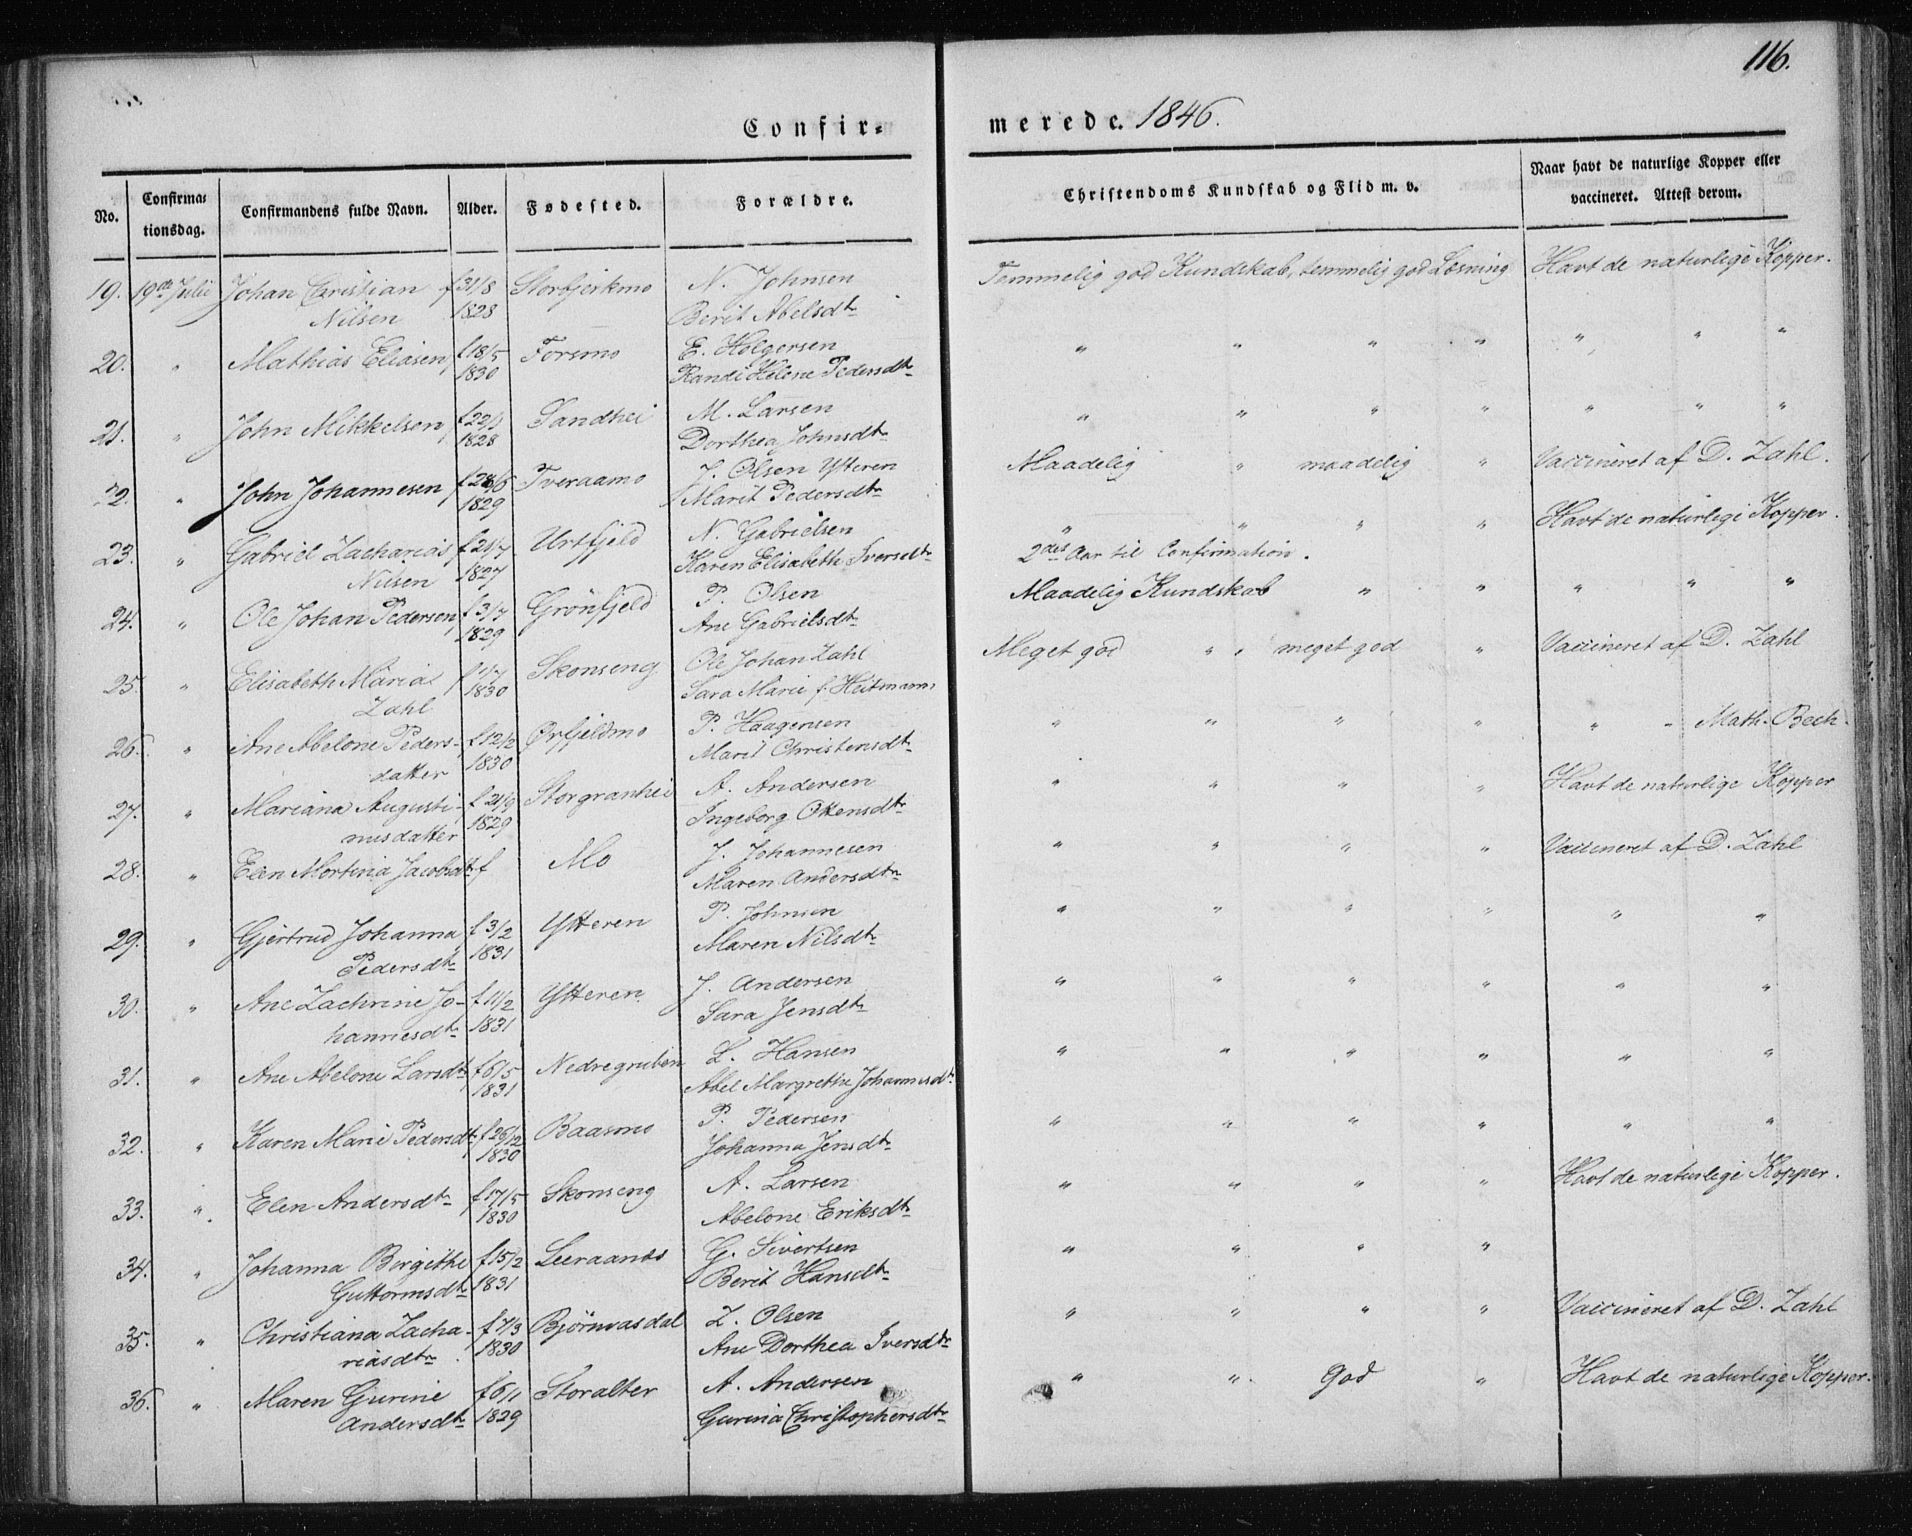 116.
Confir- merede. 1846.
No. | Confirma-tionsdag. | Confirmandens fulde Navn. | Alder. | Fødested. | Forældre. | Christendoms Kundskab og Flid m. v. | Naar havt de naturlige Kopper eller vaccineret. Attest derom.
19. 19de Julii Johan Christian f 31/8 Storfjerkmo N. Johnsen Temmelig god Kundskab, temmelig god Læsning Havt de naturlige Kopper.
Nilsen 1828 Berit Abelsdtr
20. " Mathias Eliasen f 18/5 Forsmo E. Holgersen " " " " " " "
1830 Randi Helene Pedersdtr
21. " John Mikkelsen f 22/ Sandhei M. Larsen " " " " " " "
1828 Dorthea Johnsdtr
22. " John Johannesen f 28/6 Tveraamo J. Olsen Ytteren Maadelig " maadelig " Vaccineret af D. Zahl.
1829 Marit Pedersdtr
23. " Gabriel Zacharias f 21/7 Urtfjeld N. Gabrielsen " " " " Havt de naturlige Kopper.
Nilsen 1827 Karen Elisabeth Iversdtr 2det Aar til Confirmation.
24. " Ole Johan Pedersen f 3/7 Grönfjeld P. Olsen Maadelig Kundskab " " " " "
1829 Ane Gabrielsdtr
25. " Elisabeth Maria f 1/7 Skonseng Ole Johan Zahl Meget god " meget god " Vaccineret af D. Zahl
Zahl 1830 Sara Marie f. Heitmann
26. " Ane Abelone Peders- f 12/2 Ørfjeldmo P. Haagensen " " " " " " Math. Bech.
datter 1830 Marit Christensdtr
27. " Mariana Augusti- f 21/9 Storgranhei A. Andersen " " " " Havt de naturlige Kopper
nusdatter 1829 Ingeborg Ottensdtr
28. " Elen Mortina Jacobsdtr f Mo J. Johannesen " " " " Vaccineret af D. Zahl
Maren Andersdtr
29. " Gjertrud Johanna f 3/2 Ytteren P. Johnsen " " " " " "
Pedersdtr 1831 Maren Nilsdtr
30. " Ane Zachrine Jo- f 11/2 Ytteren J. Andersen " " " " " "
hannesdtr 1831 Sara Jensdtr
31. " Ane Abelone Larsdtr f 6/5 Nedregruben L. Hansen " " " " " "
1831 Abel Margrethe Johannesdtr
32. " Karen Marie Pedersdtr f 26/12 Baasmo P. Pedersen " " " " " "
1830 Johanna Jensdtr
33. " Elen Andersdtr f 17/5 Skonseng A. Larsen " " " " Havt de naturlige Kopper.
1830 Abelone Eriksdtr
34. " Johanna Birgithe f 15/2 Leeraanæs G. Sivertsen " " " "
Guttormsdtr 1831 Berit Hansdtr
35. " Christiana Zacha- f 7/3 Bjørnnasdal Z. Olsen " " " " Vaccineret af D. Zahl
riasdtr. 1830 Ane Dorthea Iversdtr
36. " Maren Gurine f 6/1 Storalter A. Andersen " " God " Havt de naturlige Kopper.
Andersdtr 1829 Gurina Christophersdtr